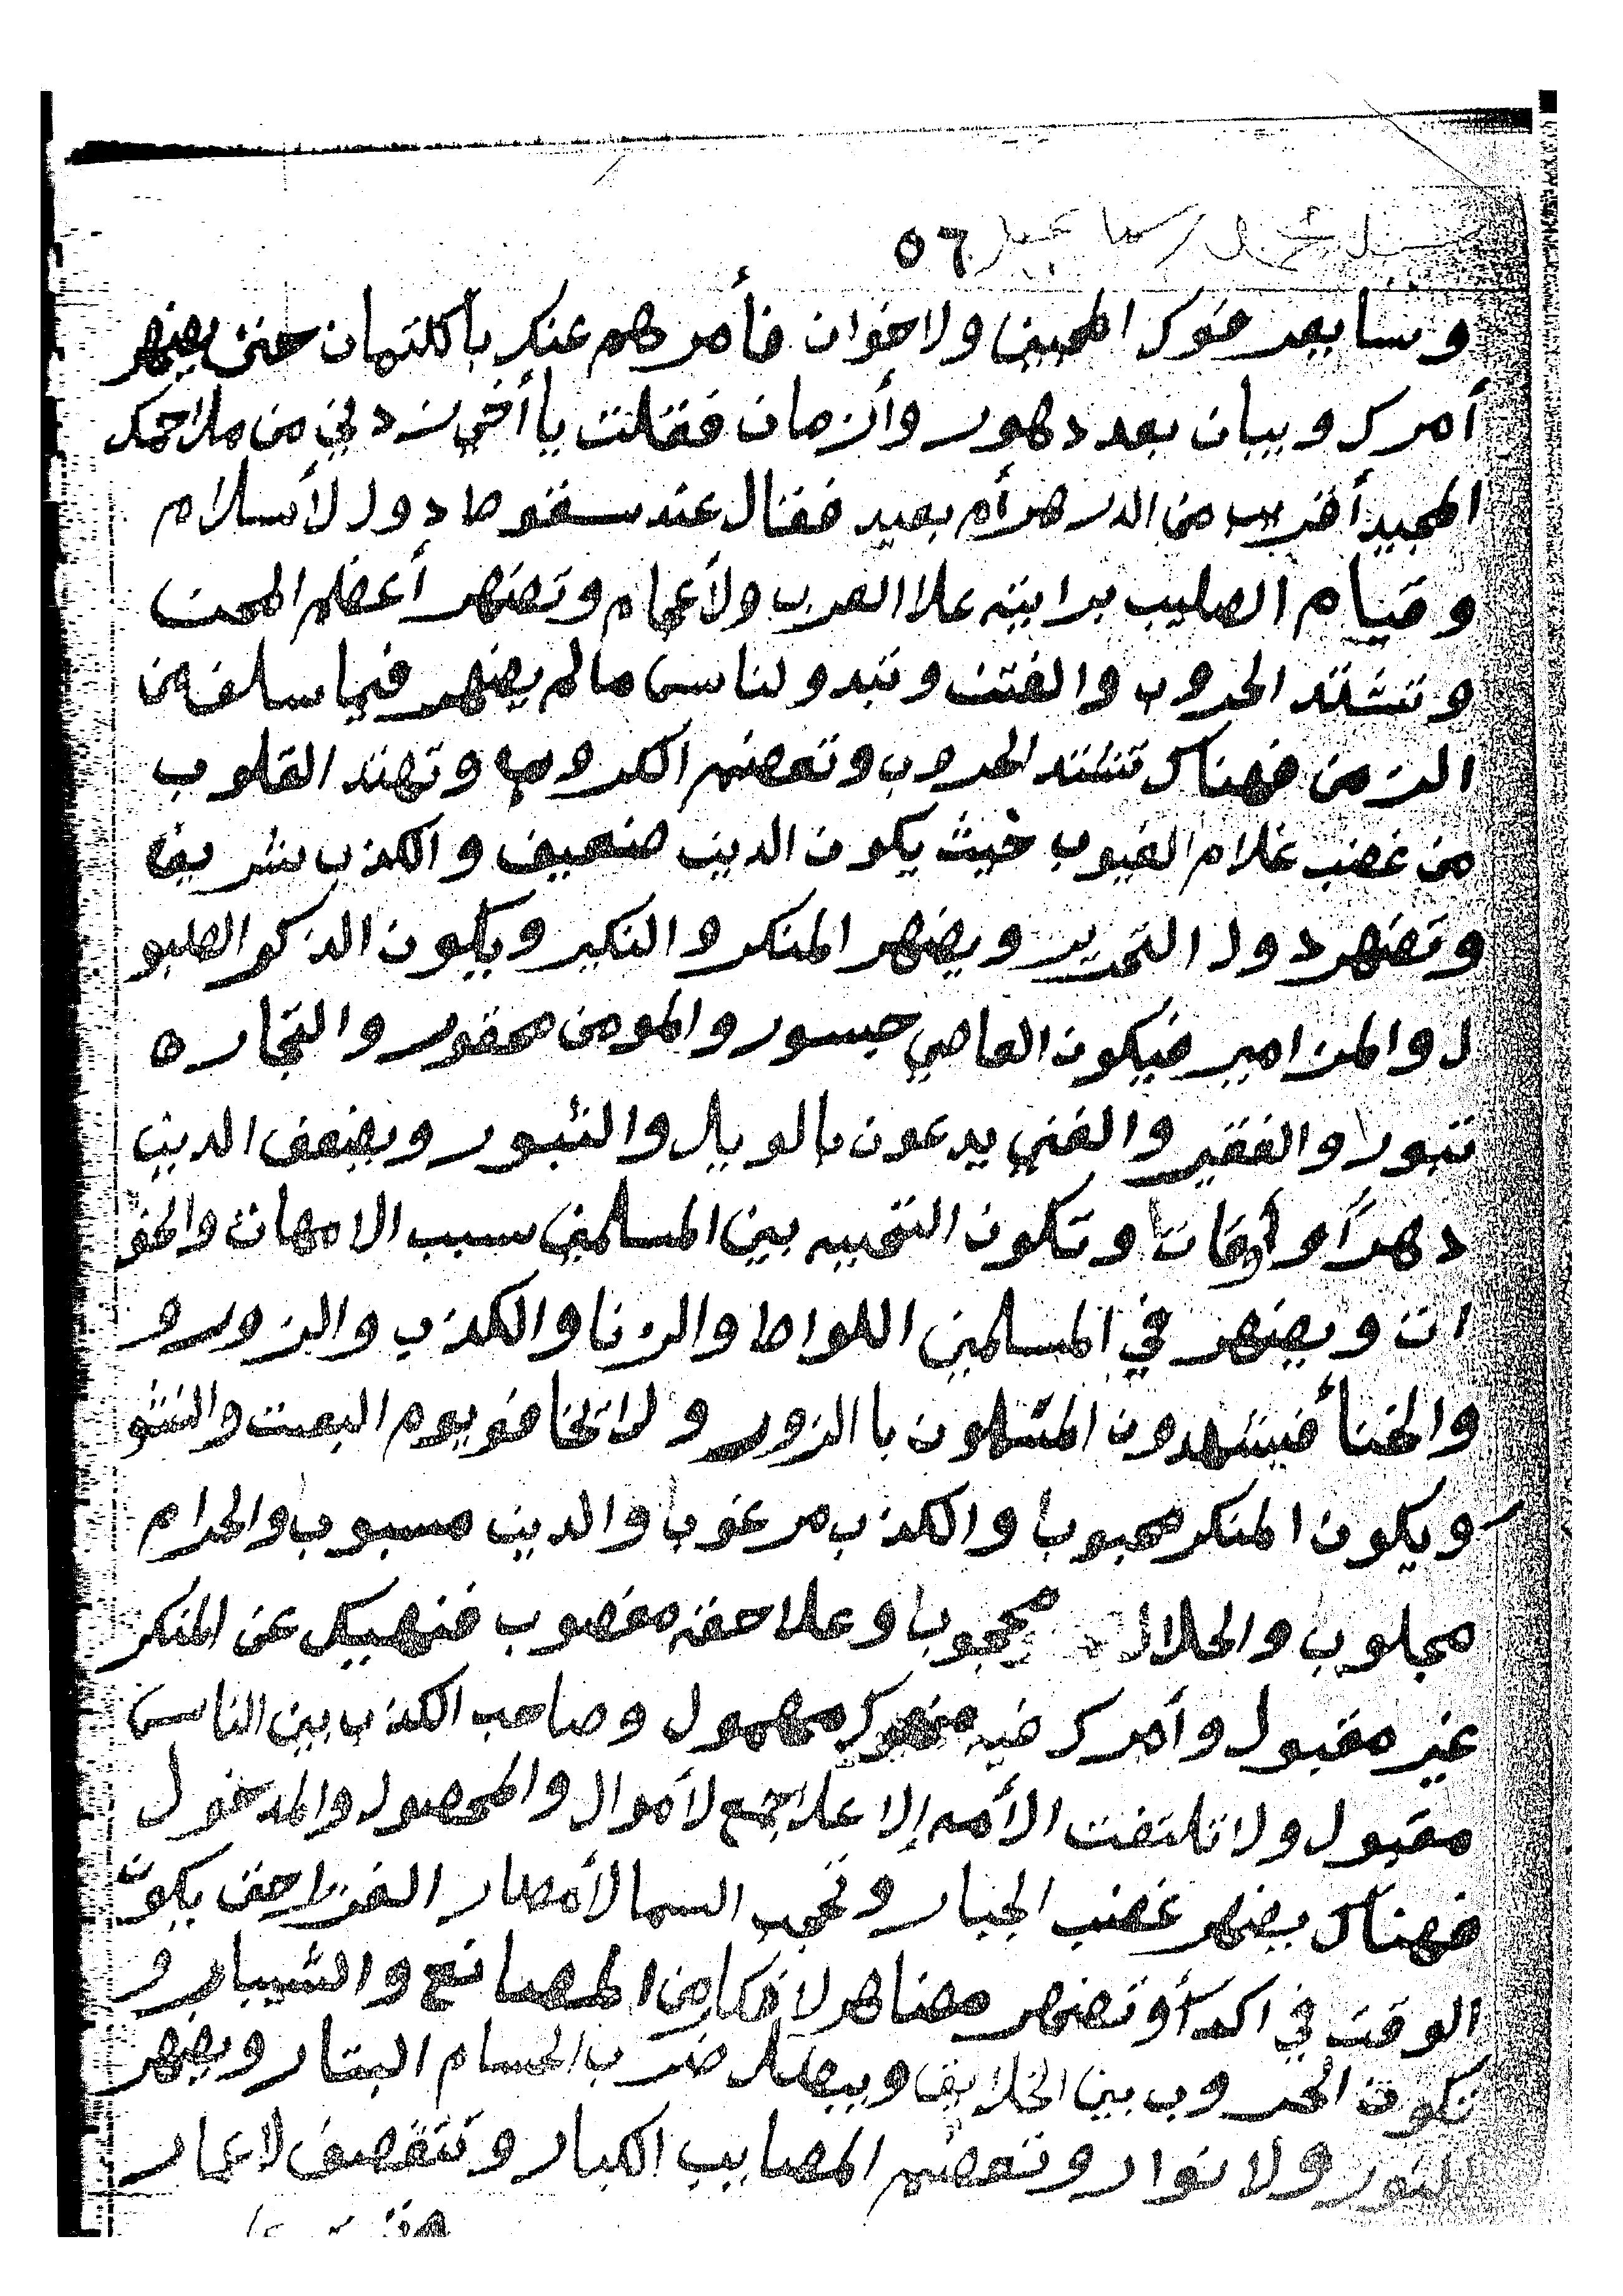 ٥٦
وسابعد خوك المحبين ولاخوان فأمرهم عنكر بالكتمان حتى يضهر
أمرك وبيان بعد دهور وأزمان فقلت يا أخي زدني من ملاحمك
المجيد أقريب من الدرهر أم بعيد فقال عند سقوط دول لأسلام
وقيام الصليب براينه علا العرب ولأعجام وتضهر أعضم المحن
وتشتد الحروب والفتن وتبدو لناس مالم يضهر فيما سلف من
الزمن فهناك تشتد الحروب وتعضم الكروب وتهتد القلوب
من غضب علام الغيوب حيث يكون الدين ضعيف والكذب شريف
وتضهر دول التحرير ويضهر المنكر والنكير ويكون الذكر الطبو
ل والمزامير فيكون العاصي جسور والمومن محقور والتجاره
تبورا والفقير والغني يدعون بالويل والثبور ويضعف الدين
دهرا وأوقات وتكون التحيه بين المسلمين سبب الامهات والخو
ات ويضهر في المسلمين اللواط والزنا والكذب والزور و
والخنأ فيشهدون المسلمون با الزور ولاتخافو يوم البعث والنشو
ر ويكون المنكر محبوبا والكذب مرغوبا والدين مسبوب والحرام
مجلوب والحلال محجوبا وعلا حقه مغصوب فنهيك عن المنكر
غير مقبول وأمرك فيه مهمول وصاحب الكذب بين الناس
مقبول ولا تلتفت الأمه إلا علا جمع لأموال والمحصول والمدخول
فهناك يضهر غضب الجبار وتحجب السما لأمطار الغزرا حتى يكون
الوقت في اكدأ وتضهر مضاهر لافكار من المصانع والشيبار و
تكون الحروب بين الخلايق ويبطل ضرب الحسام البتار ويضهر
للنور ولانوار وتعضم المصايب الكبار وتتقصف لاعمار